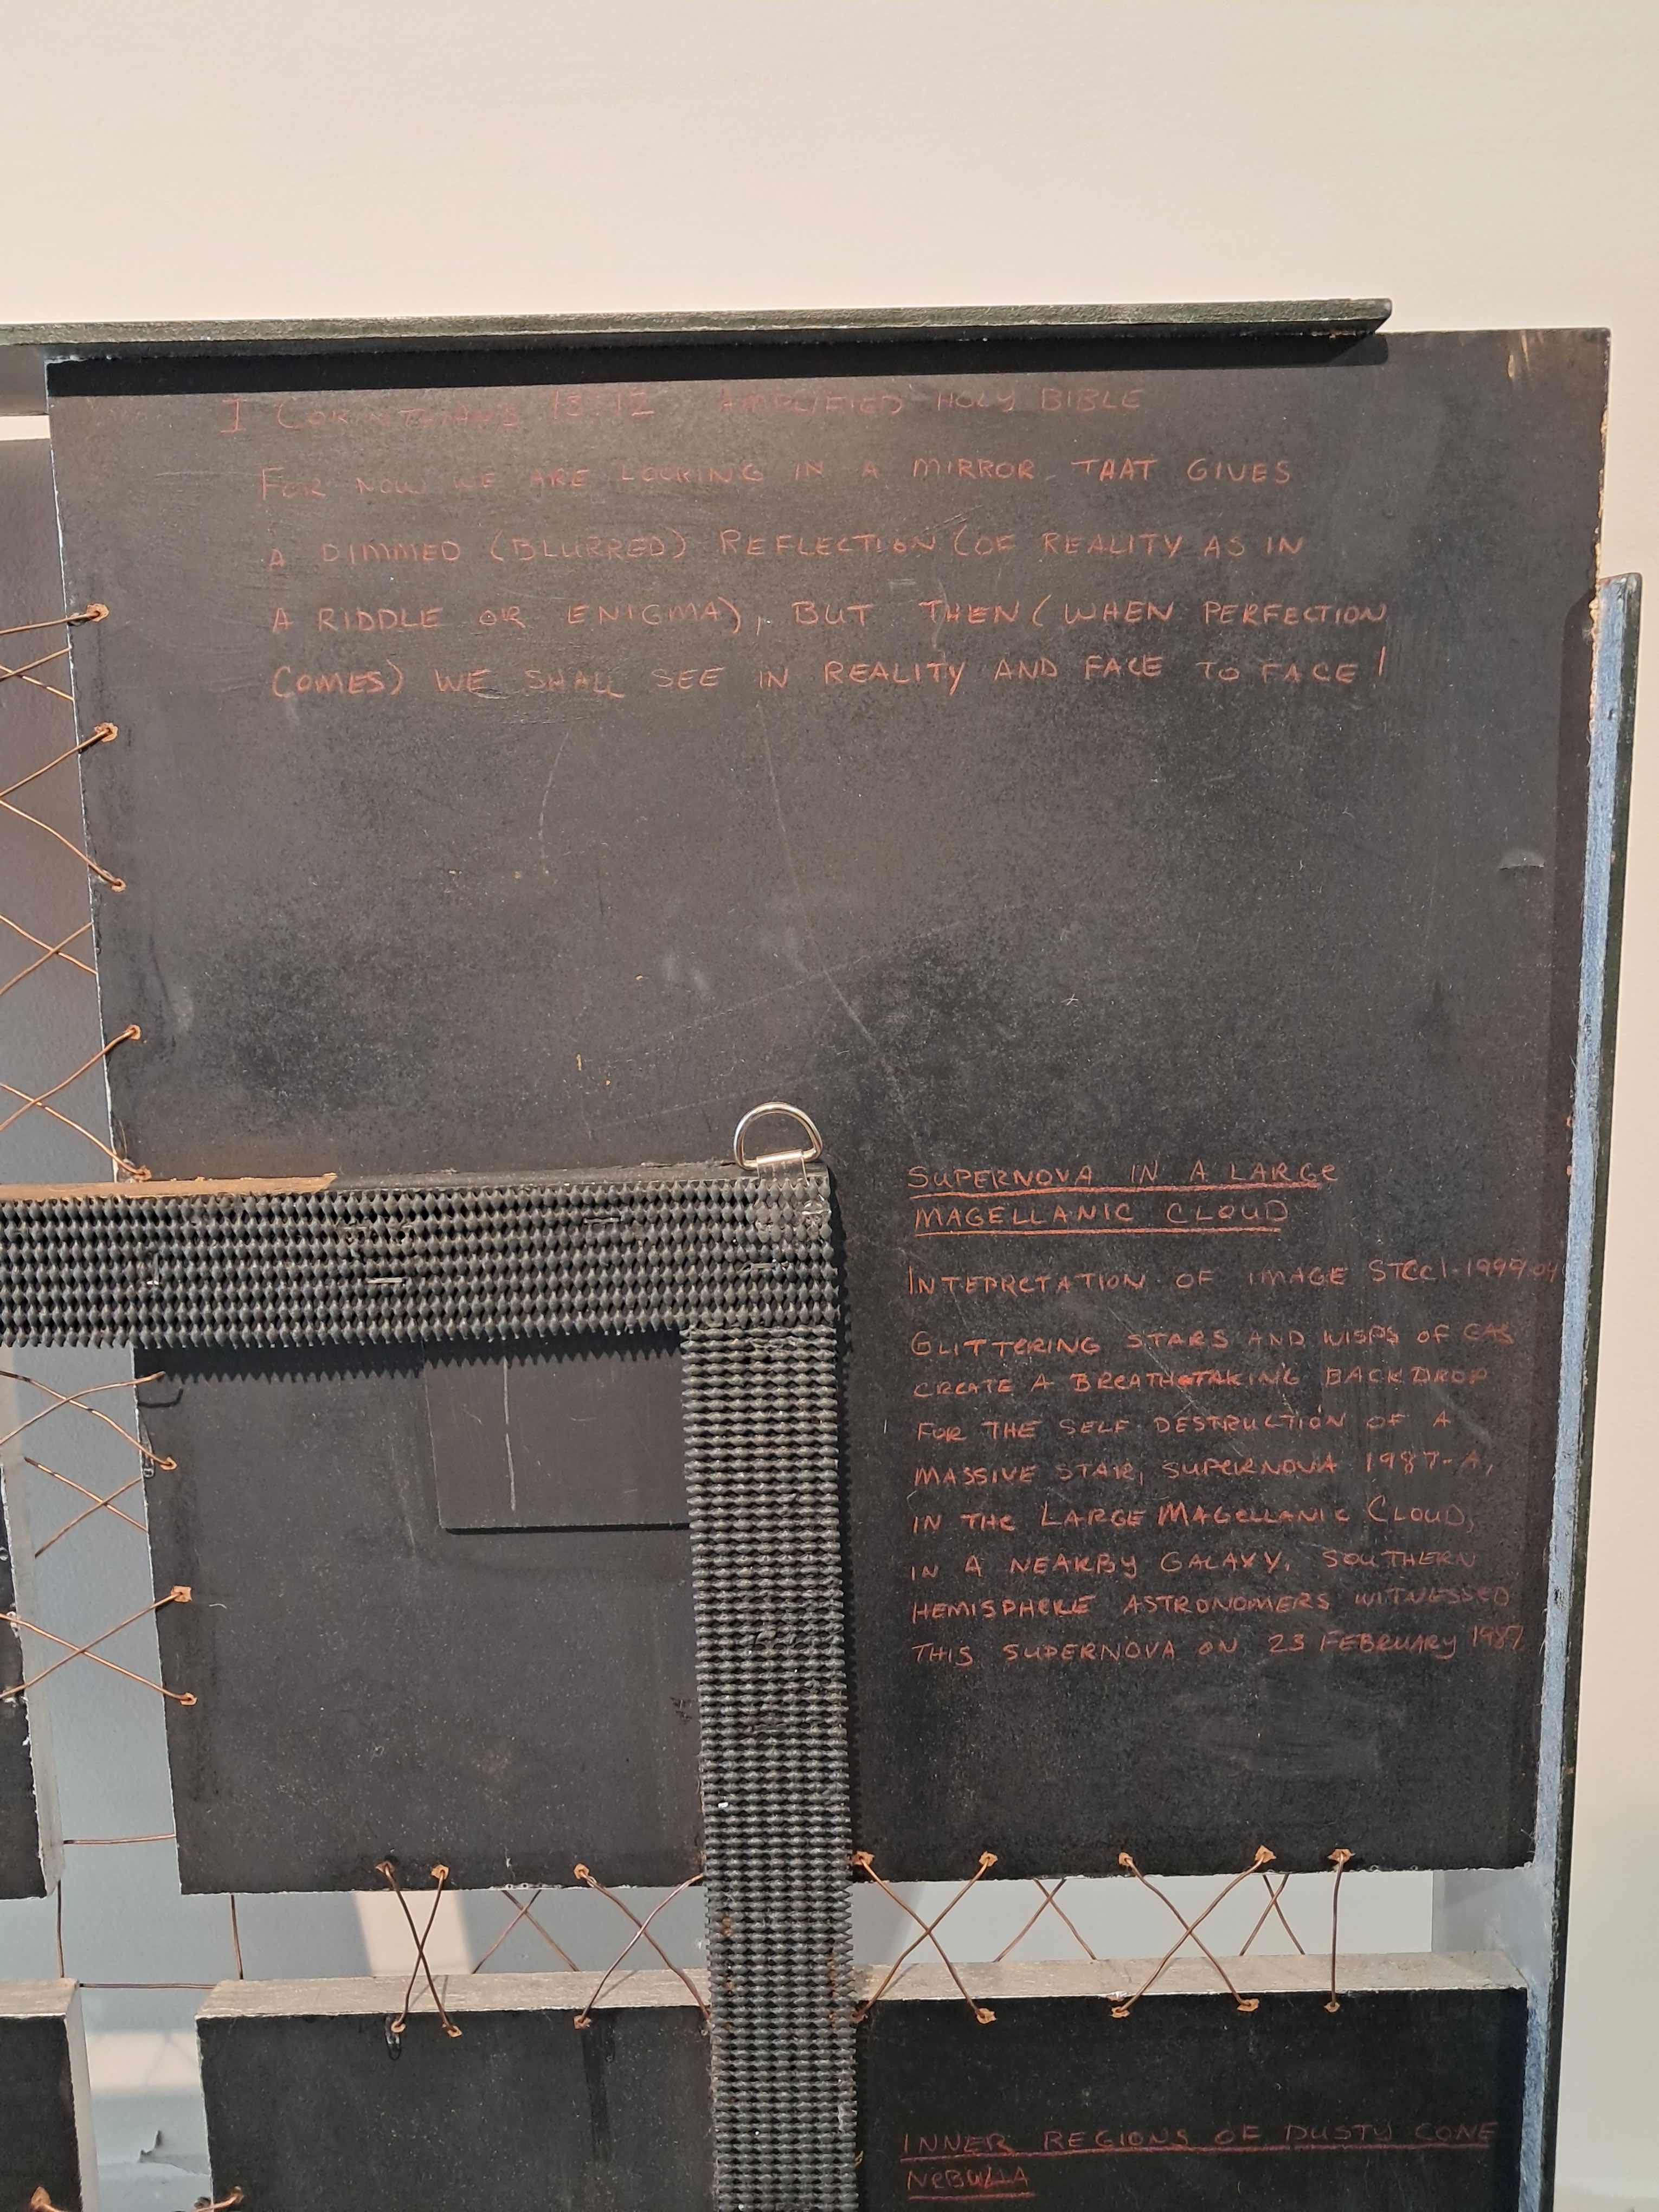 I CORINTHIANS 13:12 AMPLIFIED HOLY BIBLE
FOR NOW WE ARE LOOKING IN A MIRROR THAT GIVES
A DIMMED (BLURRED) REFLECTION (OF REALITY AS IN
A RIDDLE OR ENIGMA), BUT THEN (WHEN PERFECTION
COMES) WE SHALL SEE IN REALITY AND FACE TO FACE!
SUPERNOVA IN A LARGE
MAGELLANIC CLOUD
INTEPRETATION OF IMAGE STCCI-1999-04
GLITTERING STARS AND WISPS OF GAS
CREATE A BREATHTAKING BACKDROP
FOR THE SELF DESTRUCTION OF A
MASSIVE STAR, SUPERNOVA 1987-A,
IN THE LARGE MAGELLANIC CLOUD,
IN A NEARBY GALAXY, SOUTHERN
HEMISPHERE ASTRONOMERS WITNESSED
THIS SUPERNOVA ON 23 FEBRUARY 1987
INNER REGIONS OF DUSTY CONE
NEBULLA